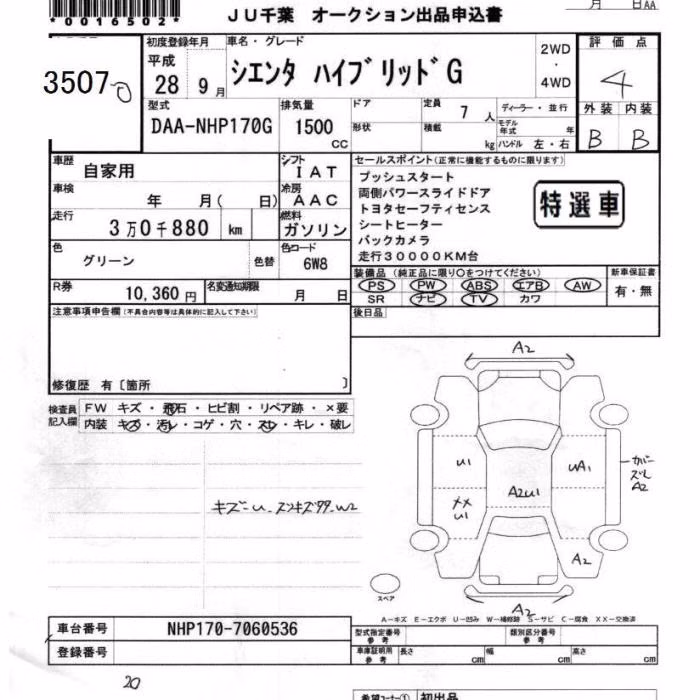 *0016502*
JU千葉 オークション出品申込書
月 日AA
3507
初度登録年月
平成
28 9月
車名・グレード
シエンタ ハイブリッドG
2WD
・
4WD
評価点
4
外装 内装
B B
型式
DAA-NHP170G
排気量
1500
CC
ドア
形状
定員
7 人
積載
kg
ディーラー・並行
モデル年式 年
ハンドル 左・右
車歴
自家用
シフト
IAT
車検
年 月( 日)
冷房
AAC
走行
3万0千880 km
燃料
ガソリン
色
グリーン
色替
色コード
6W8
R券
10,360 円
名変通知期限
月 日
セールスポイント(正常に機能するものに限ります)
プッシュスタート
両側パワースライドドア
トヨタセーフティセンス
シートヒーター
バックカメラ
走行30000KM台
特選車
装備品(純正品に限り○をつけてください)
PS PW ABS エアB AW
SR ナビ TV カワ
新車保証書
有・無
後日品
注意事項申告欄(不具合内容等は具体的に記入して下さい)
修復歴 有〔箇所 〕
検査員
記入欄
FW キズ・飛石・ヒビ割・リペア跡・×要
内装 キズ・汚レ・コゲ・穴・スレ・キレ・破レ
A2
U1
UA1
カバー
ズレ
A2
A2U1
XX
U1
A2
A2
スペア
A－キズ E－エクボ U－凹み W－補修跡 S－サビ C－腐食 XX－交換済
車台番号
NHP170-7060536
登録番号
型式指定番号
参考
類別区分番号
参考
車庫証明用
参考
長さ cm
幅 cm
高さ cm
20
希望コーナー①
初出品